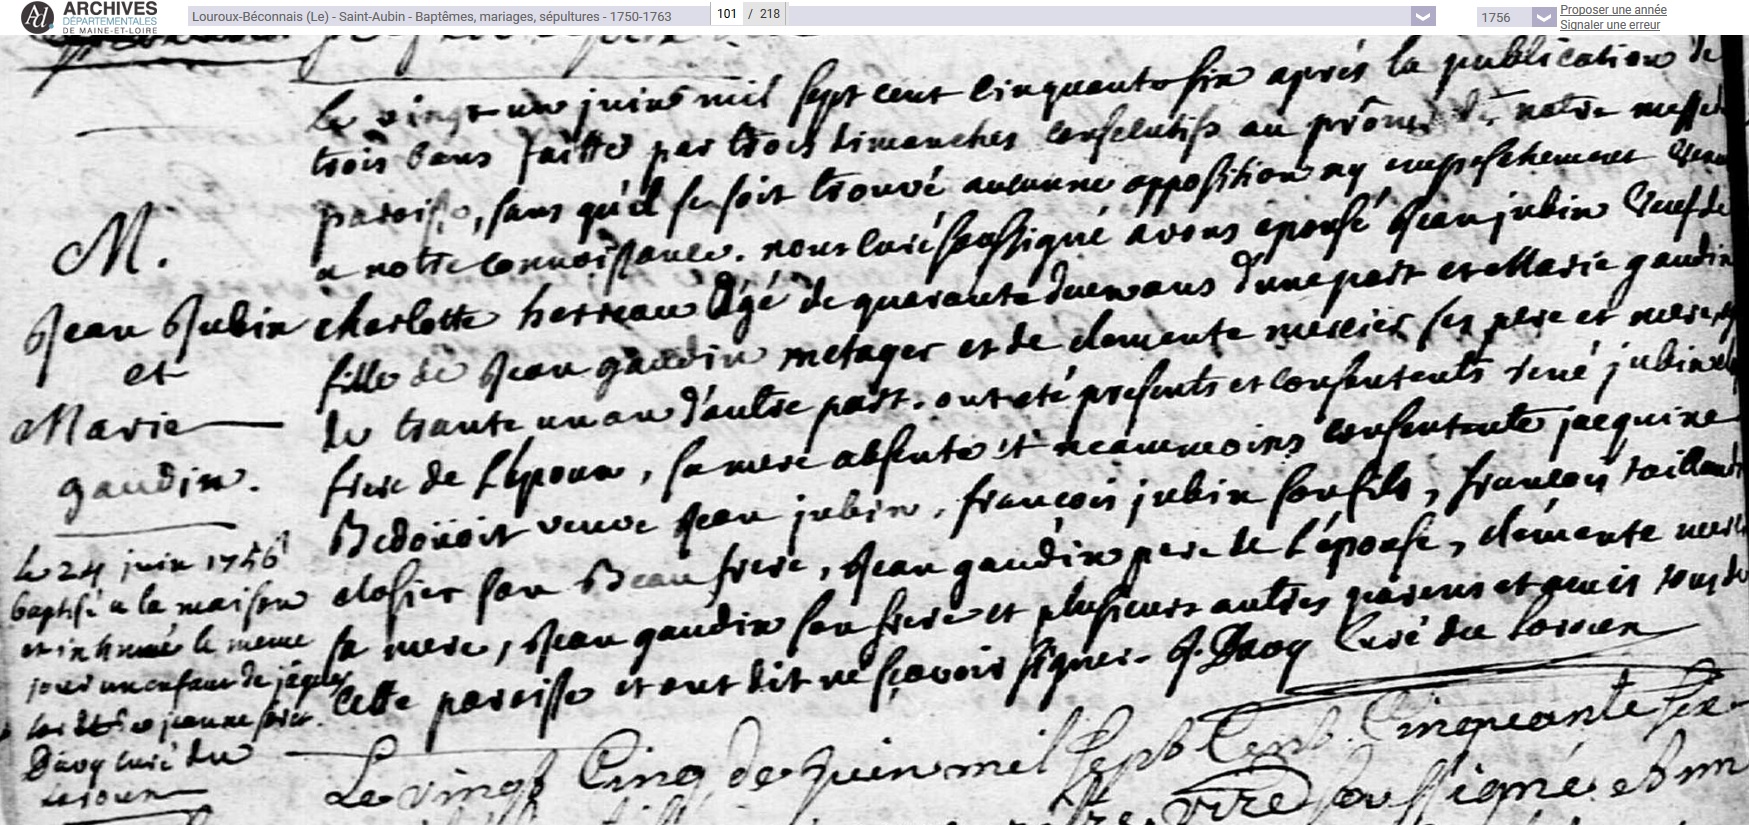 ARCHIVES
DÉPARTEMENTALES
DE MAINE-ET-LOIRE
Louroux-Béconnais (Le) - Saint-Aubin - Baptêmes, mariages, sépultures - 1750-1763
101 / 218
1756
Proposer une année
Signaler une erreur
le vingt un juin mil sept cent cinquante six après la publication de
trois bans faitte par trois dimanches consecutifs au prône de notre messe
paroiss, sans qu'il se soit trouvé aucune opposition ny empeschement
a notre connoissance. nous curé soussigné avons epousé Jean jubin Veuf de
charlotte herreau âgé de quarante deux ans d'une part et Marie gaudin
fille de Jean gaudin metayer et de clemente mercier ses pere et mere,
de trante un an d'autre part. ont eté presents et consentents rené jubin
frere de L'époux, sa mere absente et neanmoins consentente jacquine
veuve Jean jubin, francois jubin son fils, francois
closier son Beau frere, Jean gaudin pere de L'épouse, clémente
sa mere, Jean gaudin son frere et plusieurs autres parens et amis tous de
Cette paroisse et ont dit ne sçavoir signer. J. Davy Curé du Lorouex
M.
Jean Jubin
et
Marie
gaudin.
le 24 juin 1756
baptisé a la maison
et inhumé le meme
jour un enfant de
Davy curé du
Lerouex
Le vingt Cinq de Juin mil Sept Cent Cinqcante Six
soussigné